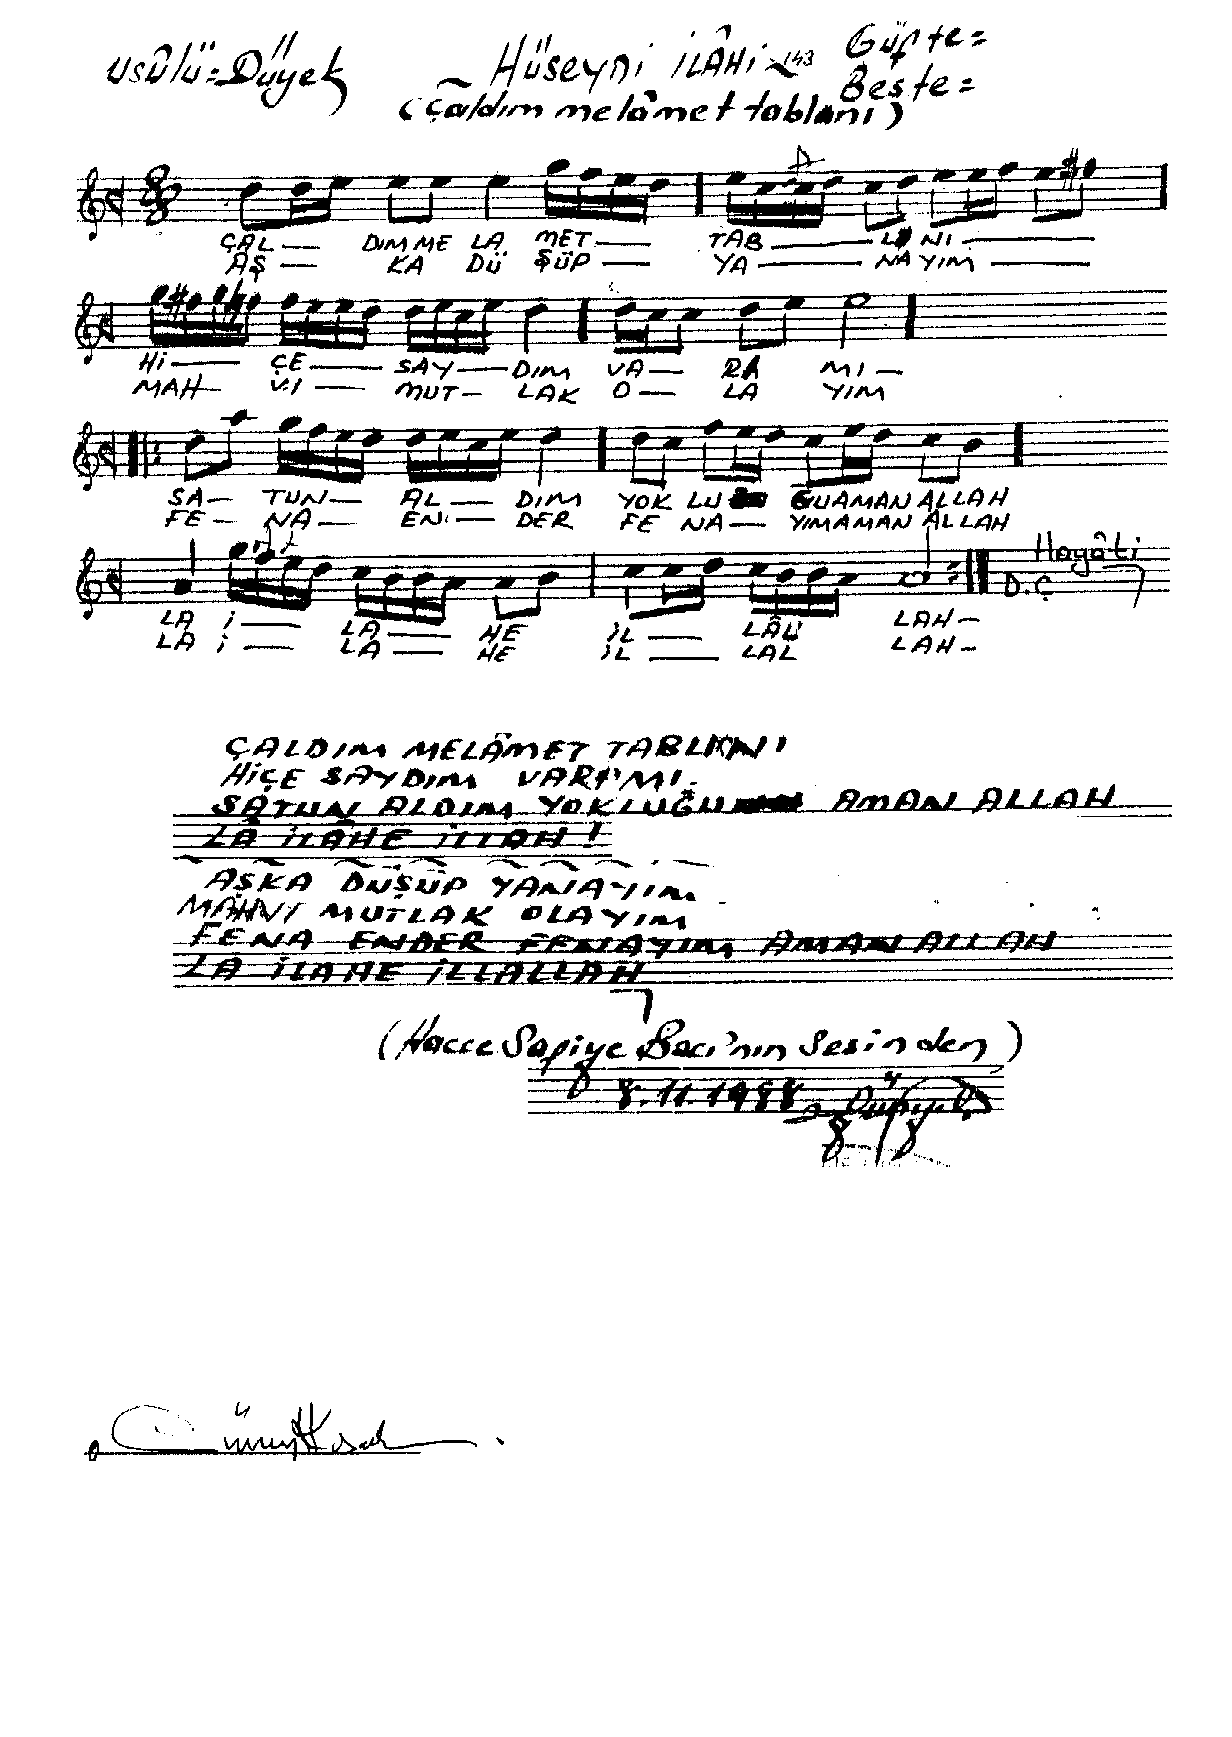 USÛLÜ=DÜYEK
HÜSEYNİ İLÂHİ
GÜFTE=
BESTE=
(Çaldım melâmet tablanı)
8
8
ÇAL — DIM ME LA MET — TAB — LA NI —
AŞ — KA DÜ ŞÜP — YA — NA YIM —
Hİ — ÇE — SAY — DIM VA — RA MI —
MAH — Vİ — MUT — LAK O — LA YIM
SA — TUN — AL — DIM YOK LU ĞU AMAN ALLAH
FE — NA — EN — DER FE NA — YIM AMAN ALLAH
Hayâti
D.Ç
LA İ — LA — HE İL — LÂL LAH —
LA İ — LA — HE İL — LAL LAH —
ÇALDIM MELÂMET TABLANI
HİÇE SAYDIM VARIMI.
SATUN ALDIM YOKLUĞU AMAN ALLAH
LÂ İLÂHE İLLAH!
AŞKA DÜŞÜP YANAYIM
MAHVİ MUTLAK OLAYIM
FENA ENDER FENAYIM AMAN ALLAH
LA İLAHE İLLALLAH
(Hacce Safiye Bacı'nın Sesinden)
8.11.1988